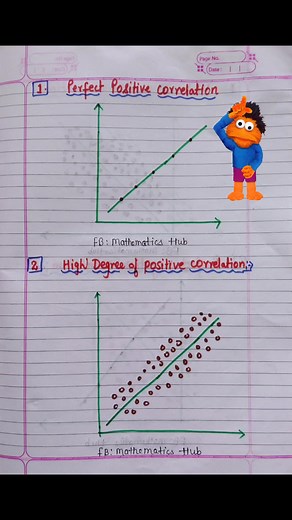 Page No.
Date
1. Perfect Positive correlation
FB: Mathematics Hub
2. High Degree of positive correlation:-
FB: Mathematics -Hub